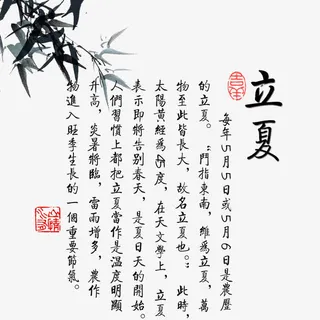 立夏
每年5月5日或5月6日是農曆
的立夏。“鬥指東南,維為立夏,萬
物至此皆長大,故名立夏也。”此時,
太陽黃經為45度,在天文學上,立夏
表示即將告別春天,是夏日天的開始。
人們習慣上都把立夏當作是溫度明顯
升高,炎暑將臨,雷雨增多,農作
物進入旺季生長的一個重要節氣。